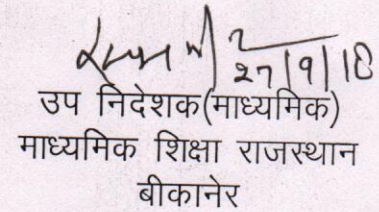 27/9/18
उप निदेशक(माध्यमिक)
माध्यमिक शिक्षा राजस्थान
बीकानेर